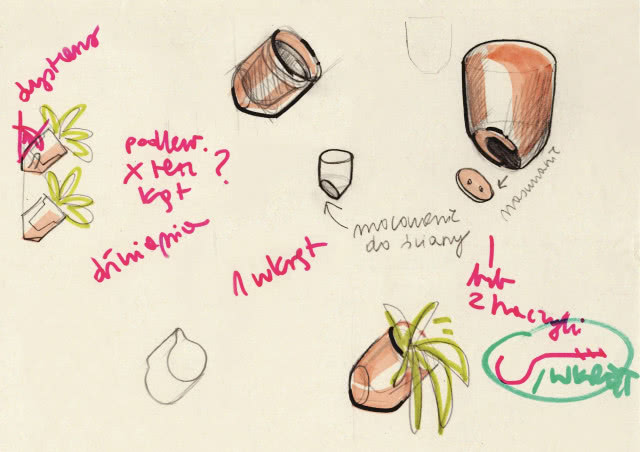 dystans
podlew.
x ten
kąt ?
dźwignia
1 wkręt
mocowanie
do ściany
nasuwanie
lub
2 haczyki
1 wkręt